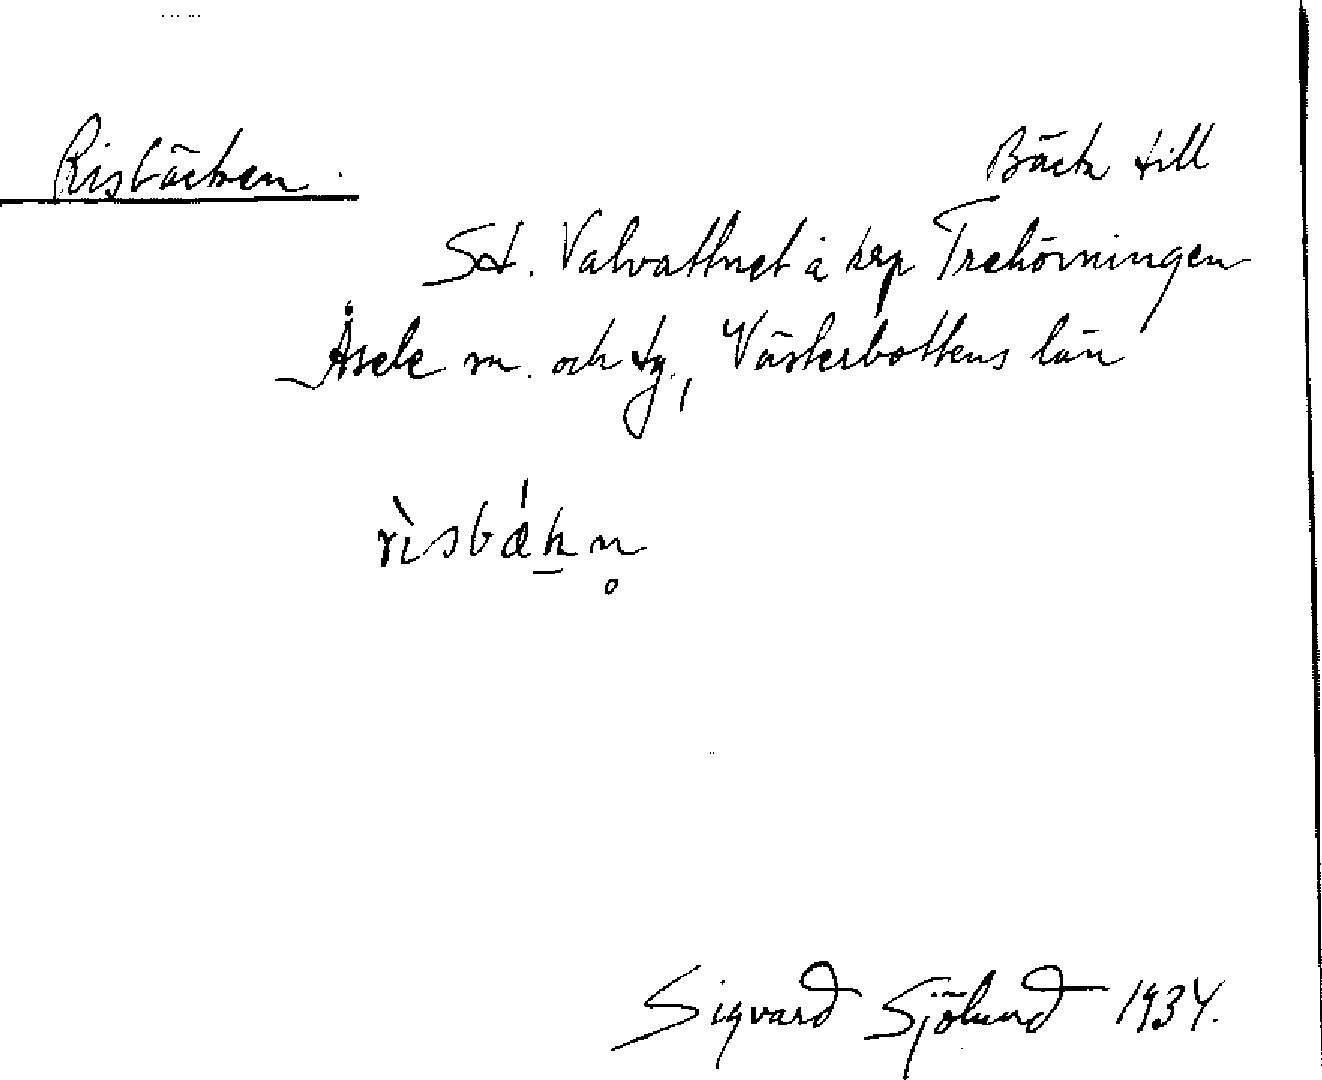 Risbäcken.
Bäck till
St. Valvattnet å krp Trehörningen
Åsele sn. och tg., Västerbottens län
rìsbǽk̲n̥
Sigvard Sjölund 1934.